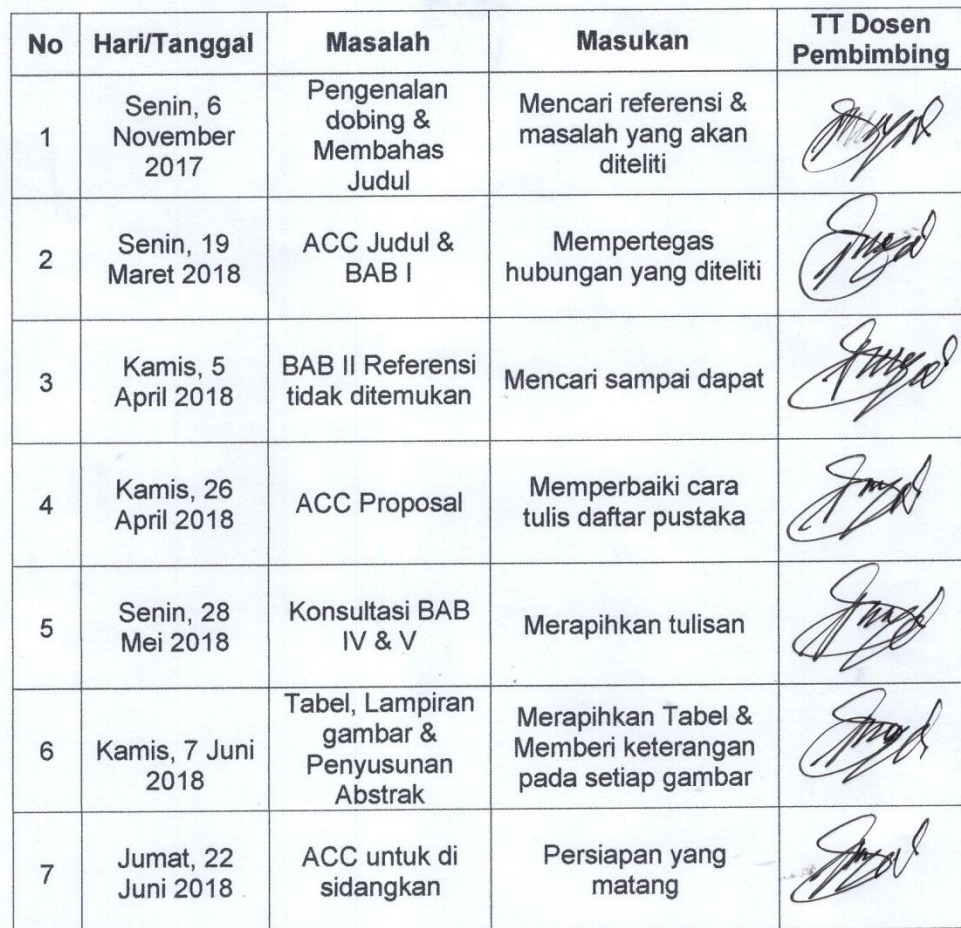 No Hari/Tanggal Masalah Masukan TT Dosen
Pembimbing
1
Senin, 6
November
2017
Pengenalan
dobing &
Membahas
Judul
Mencari referensi &
masalah yang akan
diteliti
2
Senin, 19
Maret 2018
ACC Judul &
BAB I
Mempertegas
hubungan yang diteliti
3
Kamis, 5
April 2018
BAB II Referensi
tidak ditemukan
Mencari sampai dapat
4
Kamis, 26
April 2018
ACC Proposal
Memperbaiki cara
tulis daftar pustaka
5
Senin, 28
Mei 2018
Konsultasi BAB
IV & V
Merapihkan tulisan
6
Kamis, 7 Juni
2018
Tabel, Lampiran
gambar &
Penyusunan
Abstrak
Merapihkan Tabel &
Memberi keterangan
pada setiap gambar
7
Jumat, 22
Juni 2018
ACC untuk di
sidangkan
Persiapan yang
matang